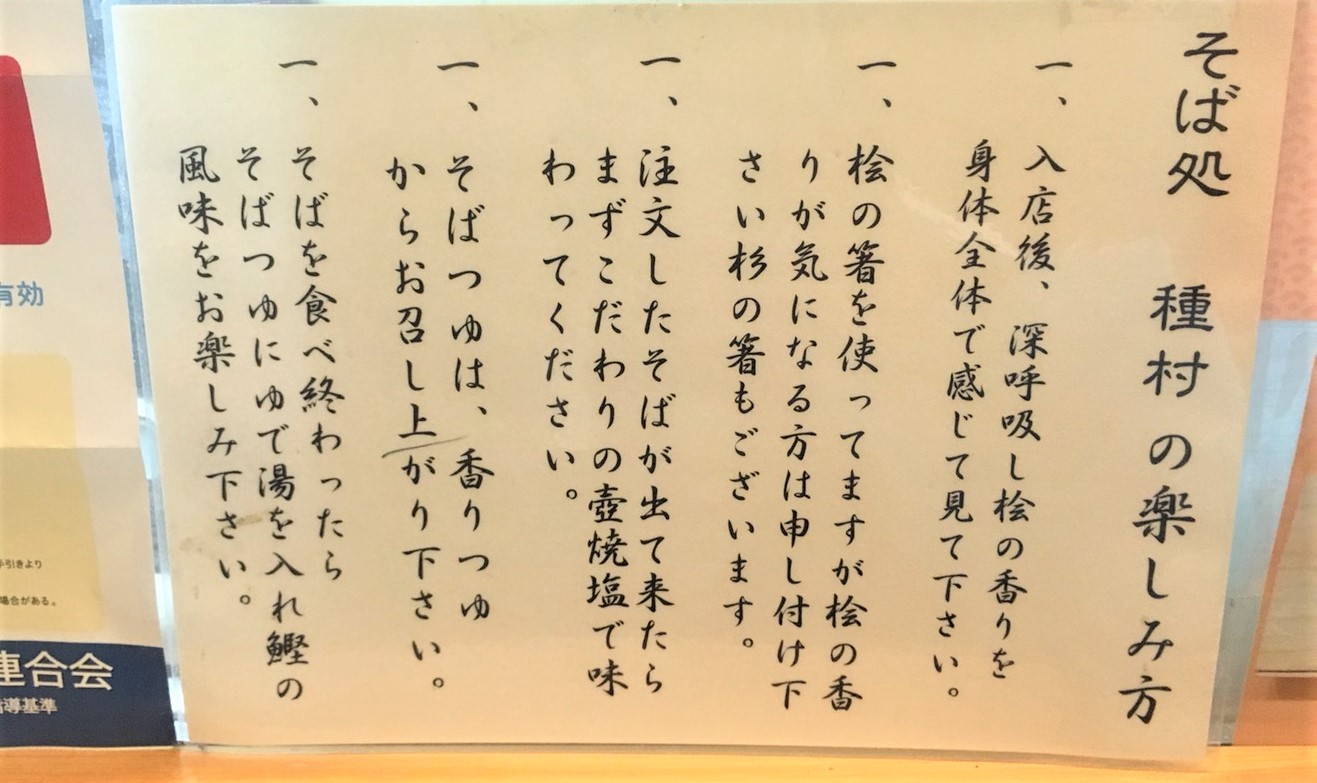 そば処　種村の楽しみ方
一、入店後、深呼吸し桧の香りを
身体全体で感じて見て下さい。
一、桧の箸を使ってますが桧の香
りが気になる方は申し付け下
さい杉の箸もございます。
一、注文したそばが出て来たら
まずこだわりの壺焼塩で味
わってください。
一、そばつゆは、香りつゆ
からお召し上がり下さい。
一、そばを食べ終わったら
そばつゆにゆで湯を入れ鰹の
風味をお楽しみ下さい。
有効
引きより
場合がある。
連合会
指導基準